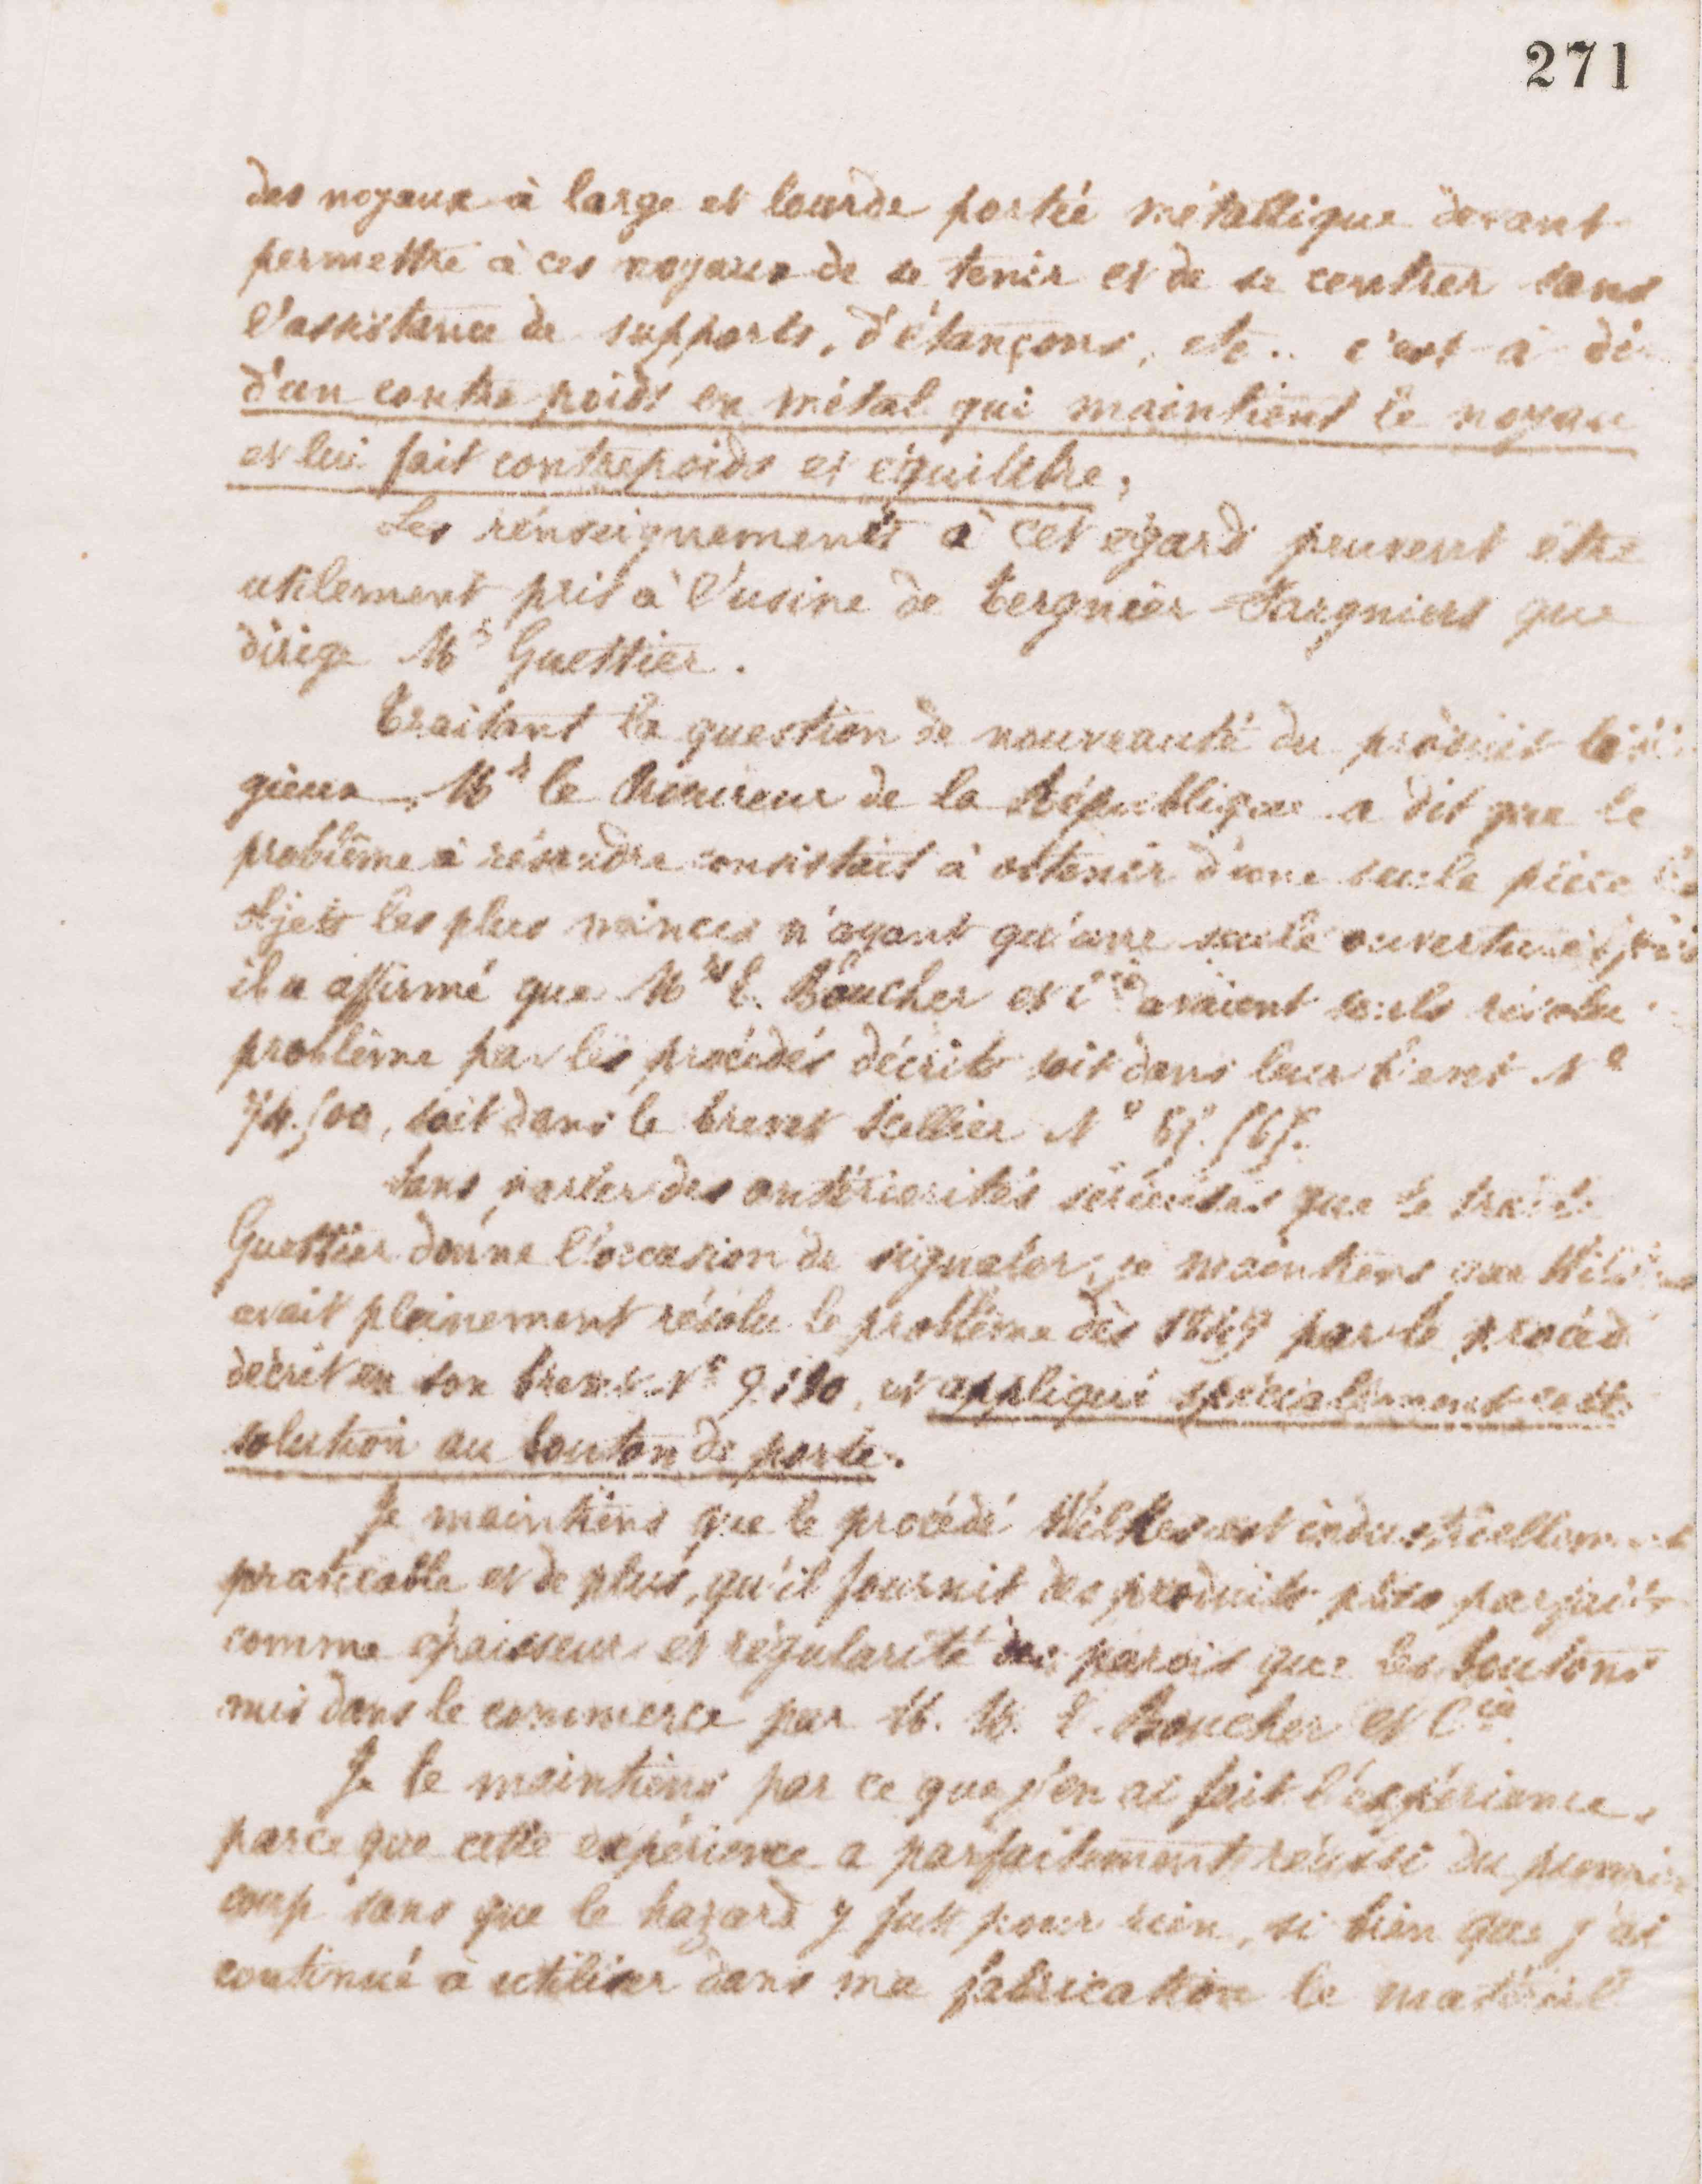 271
des noyaux à large et lourde portée métallique devant
permettre à ces noyaux de se tenir et de se centrer sans
l'assistance de supports, d'étançons, etc.. c'est à di
d'un contre poids en métal qui maintient le noyau
et lui fait contrepoids et équilibre,
Les renseignements à cet égard peuvent être
utilement pris à l'usine de Tergnier Fargniers que
dirige Mr Guettier.
Traitant la question de nouveauté du produit
gieux, Mr le Procureur de la République a dit que le
problème à résoudre consistait à obtenir d'une seule pièce
objets les plus minces n'ayant qu'une seule ouverture
il a affirmé que Mrs E. Boucher et Cie avaient seuls résolu
problème par les procédés décrits soit dans leur brevet No
soit dans le brevet Scellier No
Sans parler des antériorités sérieuses que le traité
Guettier donne l'occasion de signaler, je maintiens que
avait pleinement résolu le problème dès 1849 par le procéd
décrit en son brevet No et appliqué spécialement cette
solution au bouton de porte.
Je maintiens que le procédé Wilkes est industriellement
praticable et de plus, qu'il fournit des produits plus parfaits
comme épaisseur et régularité des parois que les boutons
mis dans le commerce par M. M. E. Boucher et Cie
Je le maintiens par ce que j'en ai fait l'expérience,
parce que cette expérience a parfaitement réussi du premier
coup sans que le hazard y fut pour rien, si bien que j'ai
continué à utiliser dans ma fabrication le matériel